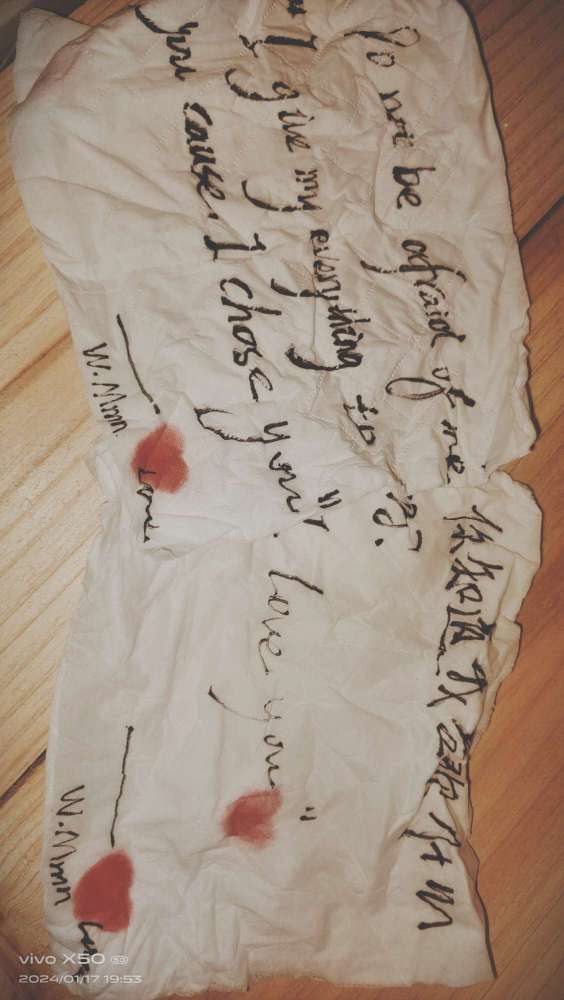 Do not be afraid of me
I give my everything to
you cause. I chose you".
W.Mmn.
Love.
你知道我
Love you"
W.Mmn
Love
vivo X50 5G
2024/01/17 19:53